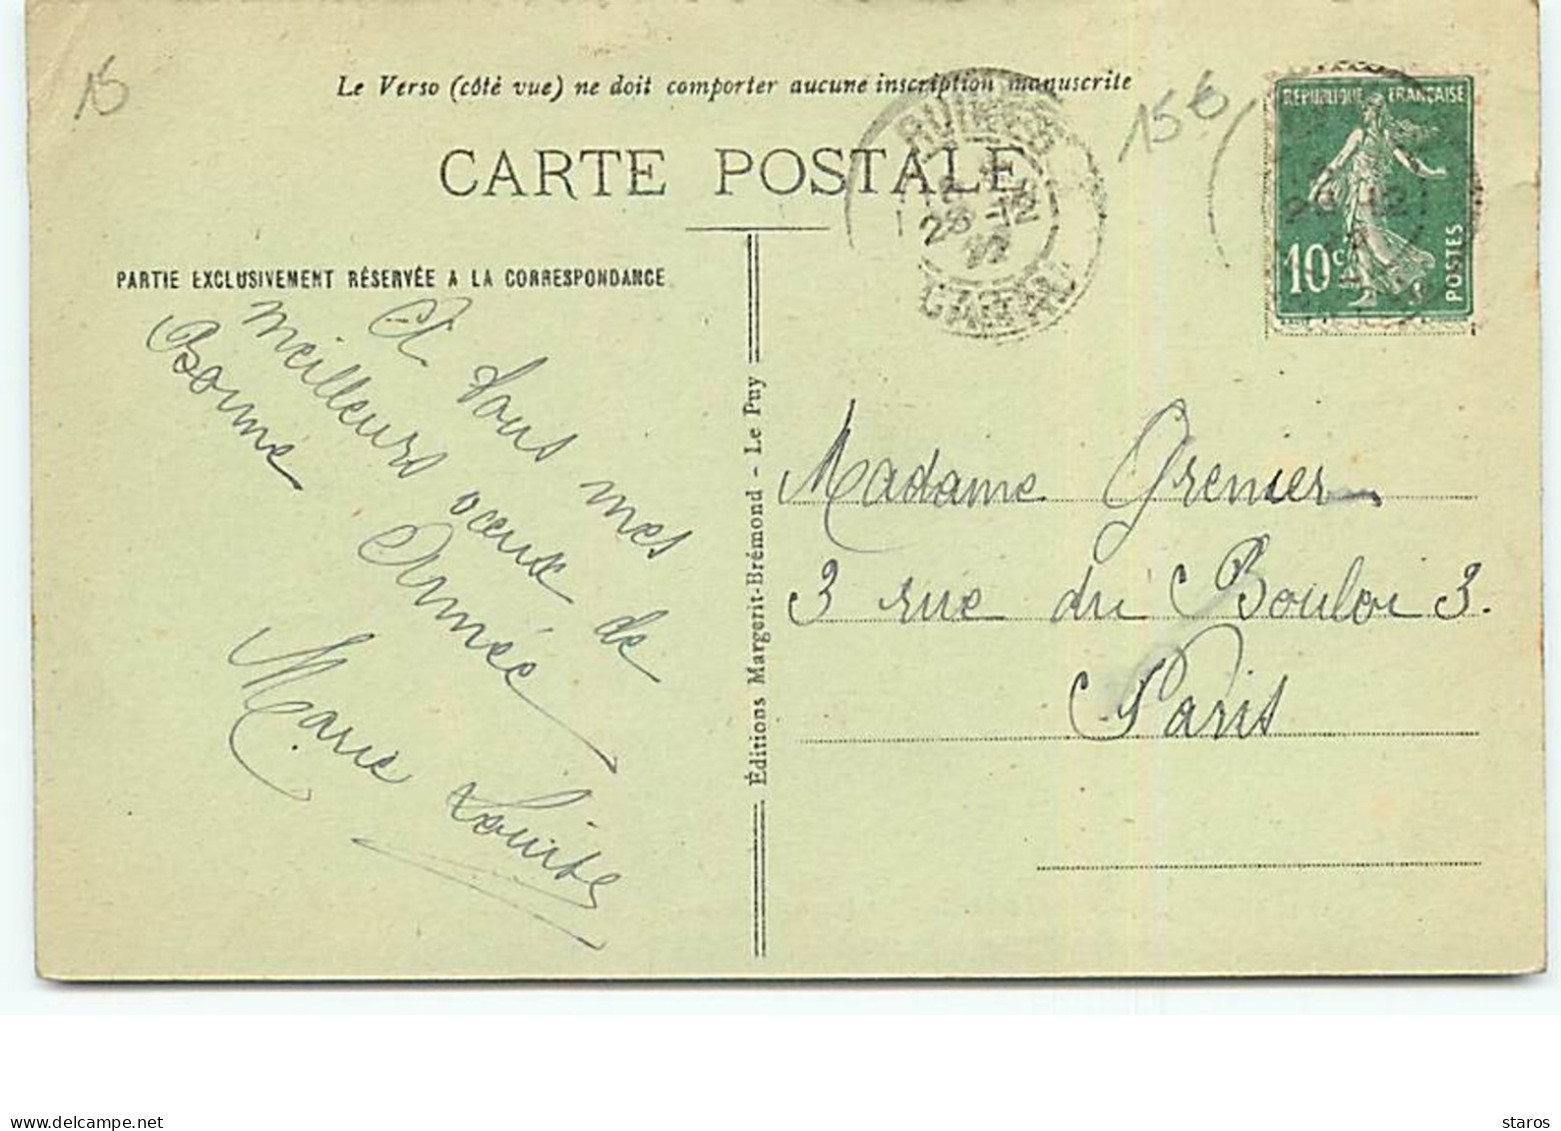 15
Le Verso (côté vue) ne doit comporter aucune inscription manuscrite
CARTE POSTALE
PARTIE EXCLUSIVEMENT RÉSERVÉE A LA CORRESPONDANCE
A tous mes
meilleurs vœux de
Bonne Année
Marie Louise
Éditions Margerit-Brémond - Le Puy
RUINES
28 -12
CANTAL
15 €
RÉPUBLIQUE FRANÇAISE
10 c
POSTES
Madame Grenier
3 rue du Bouloi 3.
Paris
delcampe.net
staros